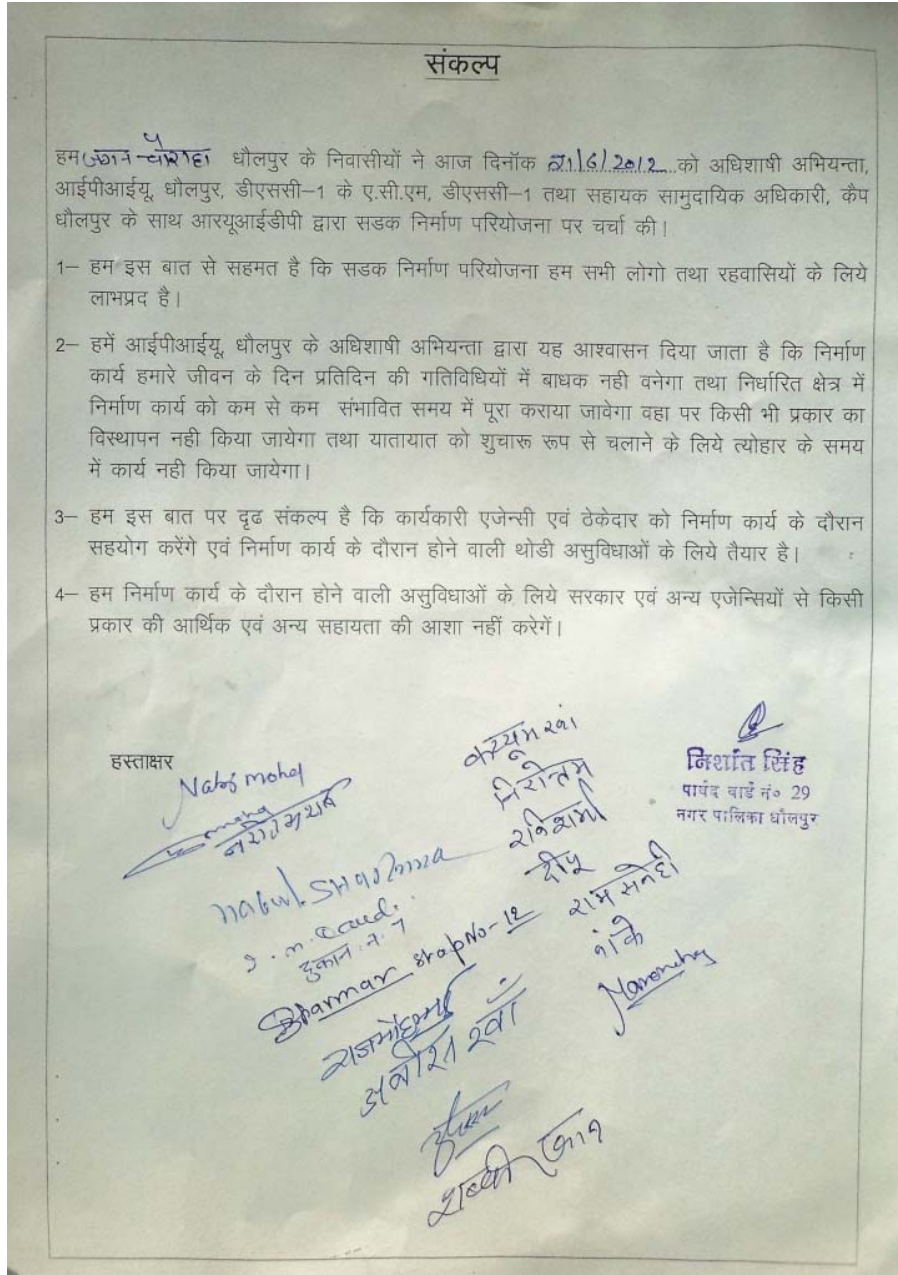 संकल्प
हम जगन चौराहा धौलपुर के निवासीयों ने आज दिनॉक 21/6/2012 को अधिशाषी अभियन्ता,
आईपीआईयू, धौलपुर, डीएससी–1 के ए.सी.एम, डीएससी–1 तथा सहायक सामुदायिक अधिकारी, कैप
धौलपुर के साथ आरयूआईडीपी द्वारा सडक निर्माण परियोजना पर चर्चा की।
1– हम इस बात से सहमत है कि सडक निर्माण परियोजना हम सभी लोगो तथा रहवासियों के लिये
लाभप्रद है।
2– हमें आईपीआईयू, धौलपुर के अधिशाषी अभियन्ता द्वारा यह आश्वासन दिया जाता है कि निर्माण
कार्य हमारे जीवन के दिन प्रतिदिन की गतिविधियों में बाधक नही वनेगा तथा निर्धारित क्षेत्र में
निर्माण कार्य को कम से कम संभावित समय में पूरा कराया जावेगा वहा पर किसी भी प्रकार का
विस्थापन नही किया जायेगा तथा यातायात को शुचारू रूप से चलाने के लिये त्योहार के समय
में कार्य नही किया जायेगा।
3– हम इस बात पर दृढ संकल्प है कि कार्यकारी एजेन्सी एवं ठेकेदार को निर्माण कार्य के दौरान
सहयोग करेंगे एवं निर्माण कार्य के दौरान होने वाली थोडी असुविधाओं के लिये तैयार है।
4– हम निर्माण कार्य के दौरान होने वाली असुविधाओं के लिये सरकार एवं अन्य एजेन्सियों से किसी
प्रकार की आर्थिक एवं अन्य सहायता की आशा नहीं करेगें।
हस्ताक्षर
निशांत सिंह
पार्षद वार्ड नं० 29
नगर पालिका धौलपुर
नरोत्तम शर्मा
दुकान नं. 7
Bharmar shop No-12
रवि शर्मा
दीपू
राम सनेही